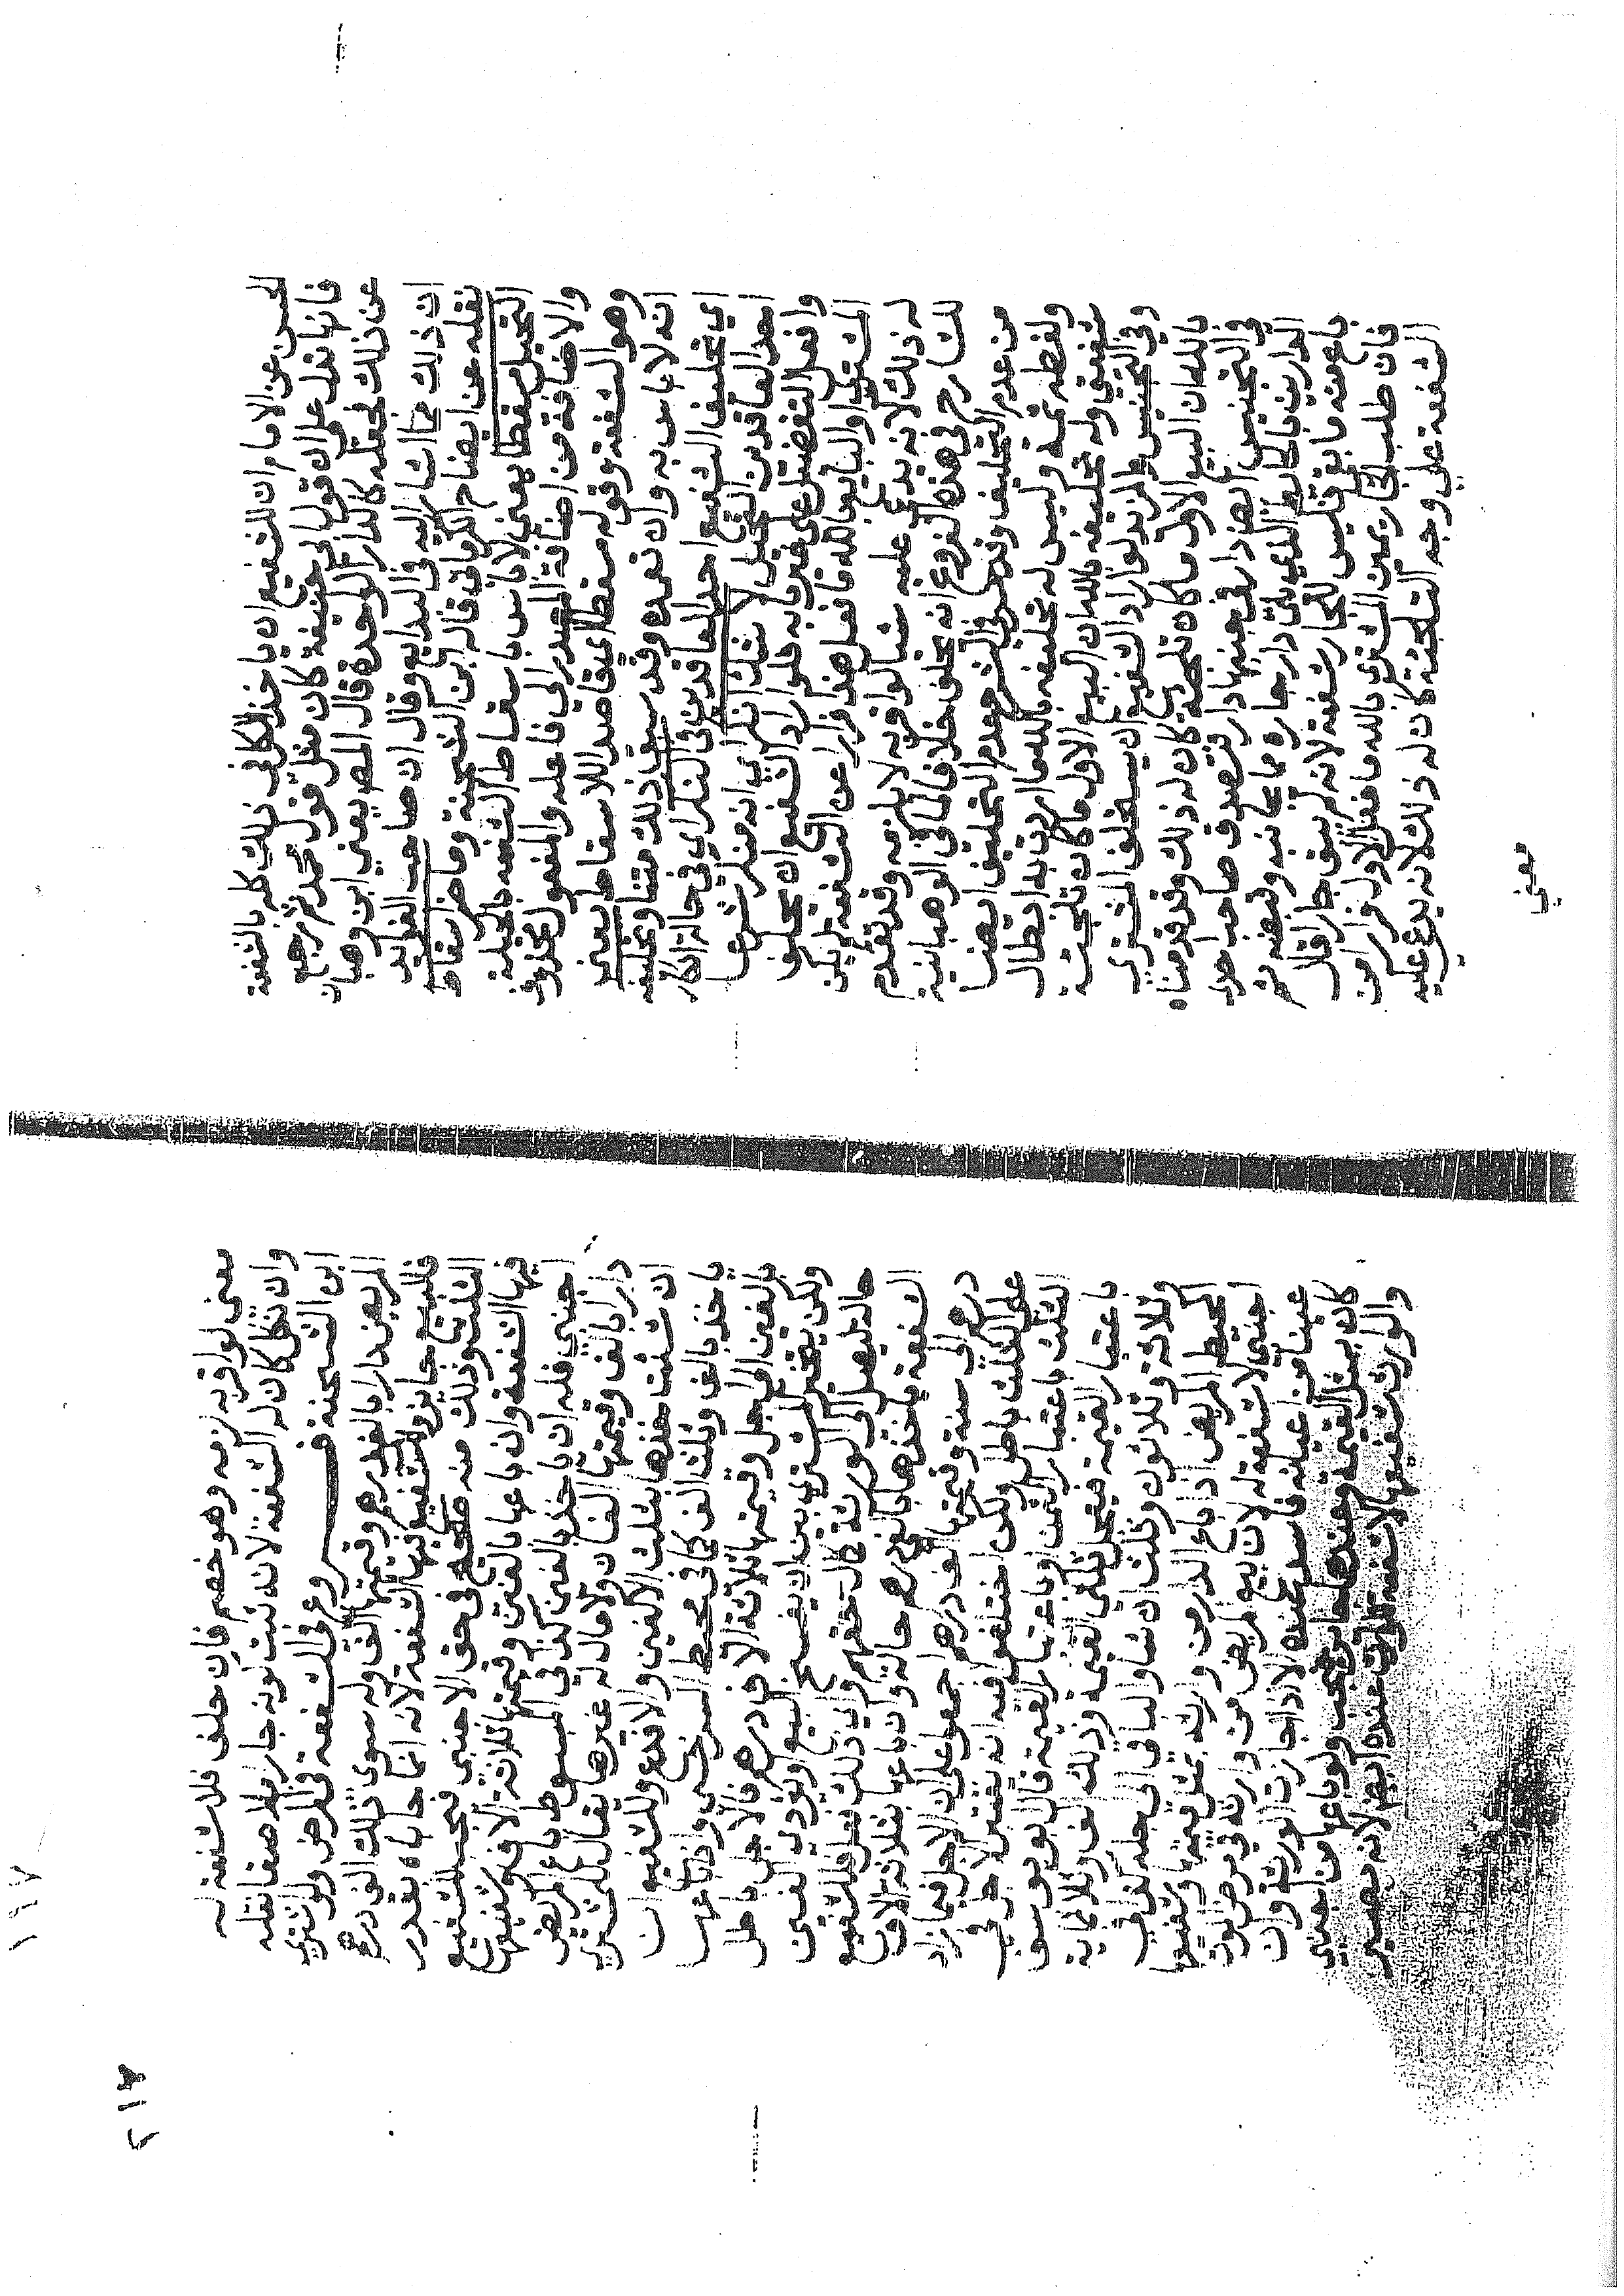 الحسن عن الامام ان للشفيع ان ياخذ الكل في ذلك كله بالشفعة
فانها تدل على ان قول ابي حنيفة كان مثل قول محمد ثم رجع
عن ذلك فجعله كالدار الواحدة قال المص يعني ابن وهبان
ان ذلك مما اشار اليه في البدايع وقال ان صاحب الفوايد
نقله عن ايضاح الكرماني قاله ابن الشحنة وما ضر اسقاط
التحيل مسقطا يعني لا باس باسقاط الشفعة بالحيلة
والاضافة من اضافة المصدر الى فاعله والمفعول محذوف
وهو الشفعة وقوله مسقطا اي قاصدا للاسقاط يعني
انه لا باس به وان تعمده وقد سبق ذلك متنا وتحليفه
اي تحليف الشفيع احد العاقدين في النكر اي في حالة انكار
احد العاقدين التحيل لا شك انكر اي انه منكر شرعا
وافعل التفضيل على غير بابه فلو اراد الشفيع ان يحلف
المشتري او البايع بالله ما فعل هذا فرارا عن الشفعة لم يكن
له ذلك لانه يدعي عليه شيا لو اقر به لا يلزمه وقد تقدم
للشارح في هذه الفروع انه يحلف خلافا لما في الوهبانية
من عدم التحليف وقد الشرح بعدم التحليف ايضا
ولفظه ثمة وليس له تحليفه بالله ما اردت به ابطال
شفعتي وله تحليفه بالله ان البيع الاول ما كان تلجئة
وفي التجنيس والمزيد لو اراد الشفيع ان يستحلف المشتري
بالله ان البيع الاول ما كان تلجئة كان له ذلك وقد قدمناه
في التجنيس ايضا دار بجنبها دار تصدق صاحب احد
الدارين بالحائط الذي يلي دار جاره مما يجانبه وقبضه ثم
باع منه ما بقي فليس للجار شفعة لانه لم يبق جارا
فان طلب الجار يمين المشتري بالله ما فعل الاول فرارا من
الشفعة على وجه التلجئة كان له ذلك لانه يدعي عليه
معنى
معنى لو اقر به لزمه وهو خصم فان حلف فلا شفعة له
وان نكل كان له الشفعة لانه ثبت كونه جارا ملاصقا نقله
ابن الشحنة فروع في الشفعة في المرض ولو اشترى
المريض دارا بالف درهم وقيمتها الف وله سوى ذلك الف درهم
فالبيع جايز وللشفيع فيها الشفعة لانه انما حاباه بقدر
الثلث وذلك منه صحيح في حق الاجنبي فيجب للشفيع
فيها الشفعة وان باعها بالفين وقيمتها ثلاثة الاف وشفيعها
اجنبي فله ان ياخذ بالفين كذا في المبسوط باع المريض
دارا بالف وقيمتها الفان ولا مال له غيرها يقال للمشتري
ان شئت خذها بثلث الالفين والا فدع وللشفيع ان
ياخذ بالف وثلث الف كما في محيط السرخسي واذا باعها
بالفين الى اجل وقيمتها ثلاثة الاف درهم فالاجل باطل
ولكن يتخير المشتري بين ان يفسخ البيع او يؤدي الفين
حالة ليصل الى الورثة كمال حقهم واي ذلك فعل فللشفيع
الشفعة ياخذها بالفي درهم حالة وان باعها بثلاثة الاف
درهم الى سنة وقيمتها الف درهم اجمعوا على ان الاجل فيما زاد
على الثلث باطل ولكن اختلفوا فيه انه يعتبر الاجل في
الثلث باعتبار الثمن او باعتبار القيمة قال ابو يوسف
باعتبار القيمة فيعجل ثلثي القيمة وذلك الف وثلاثماية
وثلاثة وثلاثون وثلث ان شاء والباقي الى اجله كذا في
المحيط المريض اذا باع الدار من وارثه بمثل قيمتها وشفيعها
اجنبي لا شفعة له لان بيع المريض من وارثه في مرض الموت
عينا من اعيانه فاسد عنده الا اذا اجازت الورثة وان
كان بمثل القيمة وعندهما يجوز وتجب ولو باعها من اجنبي
والوارث شفيعها لا شفعة للوارث عنده ايضا لانه يصير
٢١٧